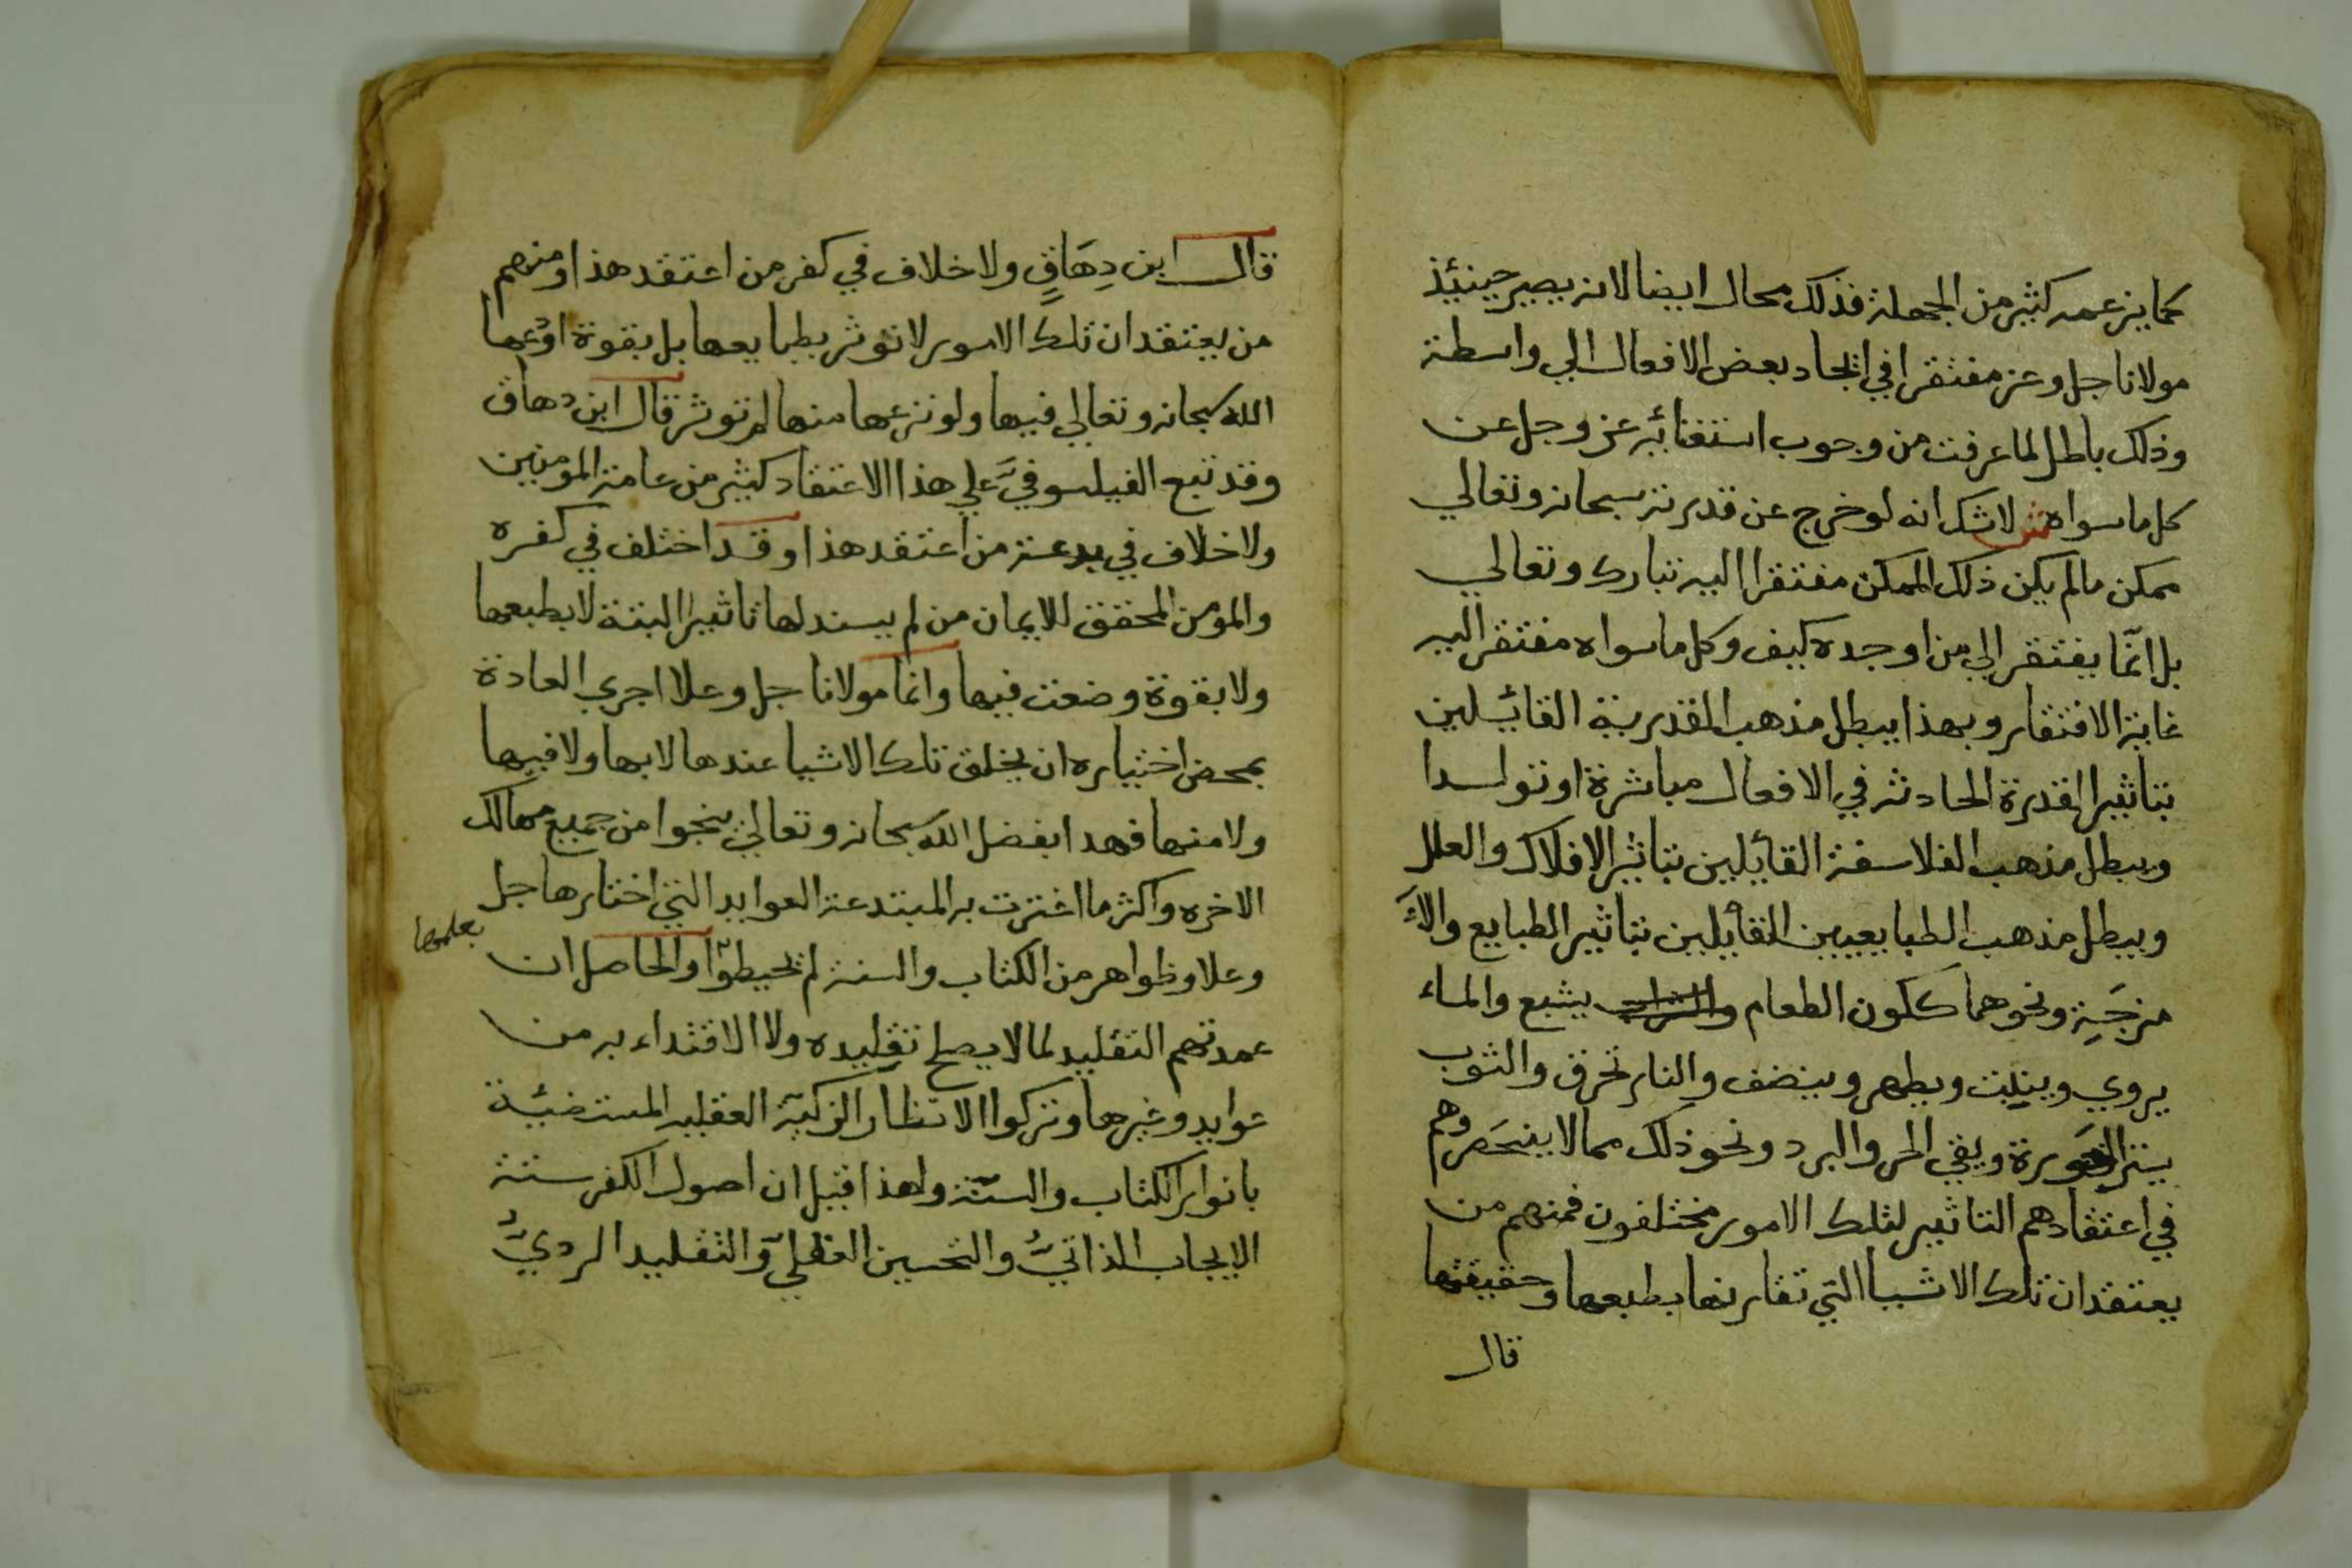 كما يزعمه كثير من الجهلة فذلك محال ايضا لانه يصير حينئذ
مولانا جل وعز مفتقرا في ايجاد بعض الافعال الي واسطة
وذلك باطل لما عرفت من وجوب استغنائه عز وجل عن
كل ما سواه ش لاشك انه لو خرج عن قدرته سبحانه وتعالي
ممكن ما لم يكن ذلك الممكن مفتقرا اليه تبارك وتعالي
بل انما يفتقر الي من اوجده كيف وكل ما سواه مفتقر اليه
غاية الافتقار وبهذا يبطل مذهب القدرية القائلين
بتاثير القدرة الحادثه في الافعال مباشرة او تولدا
ويبطل مذهب الفلاسفة القائلين بتاثير الافلاك والعلل
ويبطل مذهب الطبايعيين القائلين بتاثير الطبايع والا
مزجَةِ ونحوهما ككون الطعام والشراب يشبع والماء
يروي وينبت ويطهر وينضف والنار تحرق والثوب
يستر العورة ويقي الحر والبرد ونحو ذلك مما لا ينحصر وهم
في اعتقادهم التاثير لتلك الامور مختلفون فمنهم من
يعتقد ان تلك الاشيا التي تقارنها بطبعها وحقيقتها
قال
قال ابن دِهَاقٍ ولا خلاف في كفر من اعتقد هذا ومنهم
من يعتقد ان تلك الامور لا توثر بطبايعها بل بقوة اودعها
الله سبحانه وتعالي فيها ولو نزعها منها لم توثر قال ابن دهاق
وقد تبع الفيلسوفيَّ علي هذا الاعتقاد كثير من عامة المومنين
ولا خلاف في بدعة من اعتقد هذا وقد اختلف في كفره
والمومن المحقق للايمان من لم يسند لها تاثيرا البتة لا بطبعها
ولا بقوة وضعت فيها وانما مولانا جل وعلا اجري العادة
بمحض اختياره ان يخلق تلك الاشيا عندها لا بها ولا فيها
ولا منها فهدا بفضل الله سبحانه وتعالي ينجوا من جميع مهالك
الاخره واكثر ما اغترت به المبتدعة العوايد التي اختارها جل
وعلا وظواهر من الكتاب والسنة لم يحيطوا والحاصل ان
بعلمها
عمدتهم التقليد لما لا يصلح تقليده ولا الاقتداء به من
عوايد وغيرها وتركوا الانظار الزكية العقلية المستضيئة
بانوار الكتاب والسنّة ولهذا قيل ان اصول الكفر ستة
الايجاب الذاتيُّ والتحسين العقليّ والتقليد الرديُّ